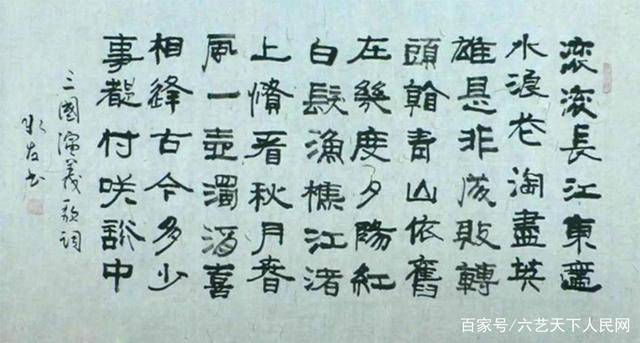 滚滚長江東逝
水浪花淘盡英
雄是非成敗轉
頭空青山依舊
在幾度夕陽紅
白髮漁樵江渚
上慣看秋月春
風一壺濁酒喜
相逢古今多少
事都付咲談中
三國演義歌詞
百家号/六艺天下人民网